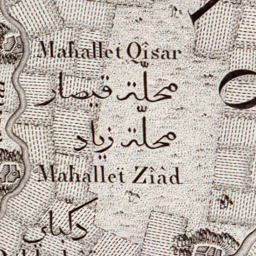 Mahallet Qîsar
محلّة قيصار
محلّة زياد
Mahallet Zîâd